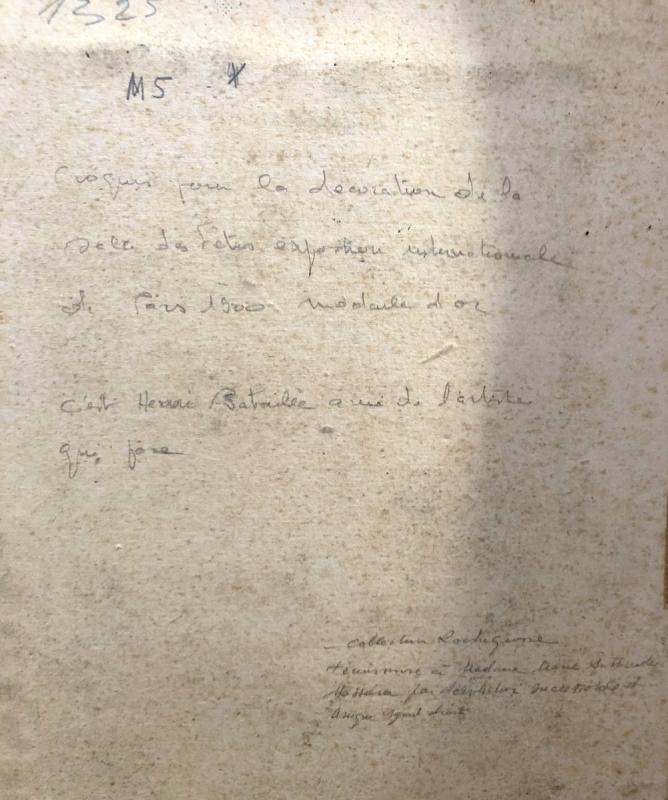 1325
M5 *
Croquis pour la decoration de la
salle des Fêtes exposition internationale
de Paris 1900 medaille d'or
c'est Henri Bataille ami de l'artiste
qui pose
— Collection
à Madame
par succession et